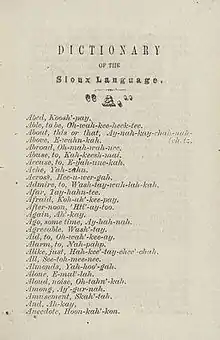 DICTIONARY
OF THE
Sioux Language.
"A."
Abed, Koosh'-pay.
Able, to be, Oh-wah-kee-heck-tee.
About, this or that, Ay-nah-kay-chah-nah-
Above, E-wahn-kah.
Abroad, Oh-mah-wah-nee.
Abuse, to, Kah-keesh-mai.
Accuse, to, E-yah-une-kah.
Ache, Yah-zahn.
Across, Hee-u-wer-gah.
Admire, to, Wash-tay-wah-lah-kah.
Afar, Tay-hahn-tee.
Afraid, Koh-ah'-kee-pay.
After-noon, Ht!'-ay-too.
Again, Ah'-kay.
Ago, some time, Ay-hah-nah.
Agreeable, Wash'-tay.
Aid, to, Oh-wah'-kee-ay.
Alarm, to, Yah-pahp.
Alike, just, Hah-kee'-tay-chee'-chah.
All, See-toh-mee-nee.
Almonds, Yah-hoo'-gah.
Alone, E-mat'-lah.
Aloud, noise, Oh-tahn'-kah.
Among, Ay'-gur-nah.
Amusement, Skah'-tah.
And, Ah-kay,
Anecdote, Hoon-kah'-kon.